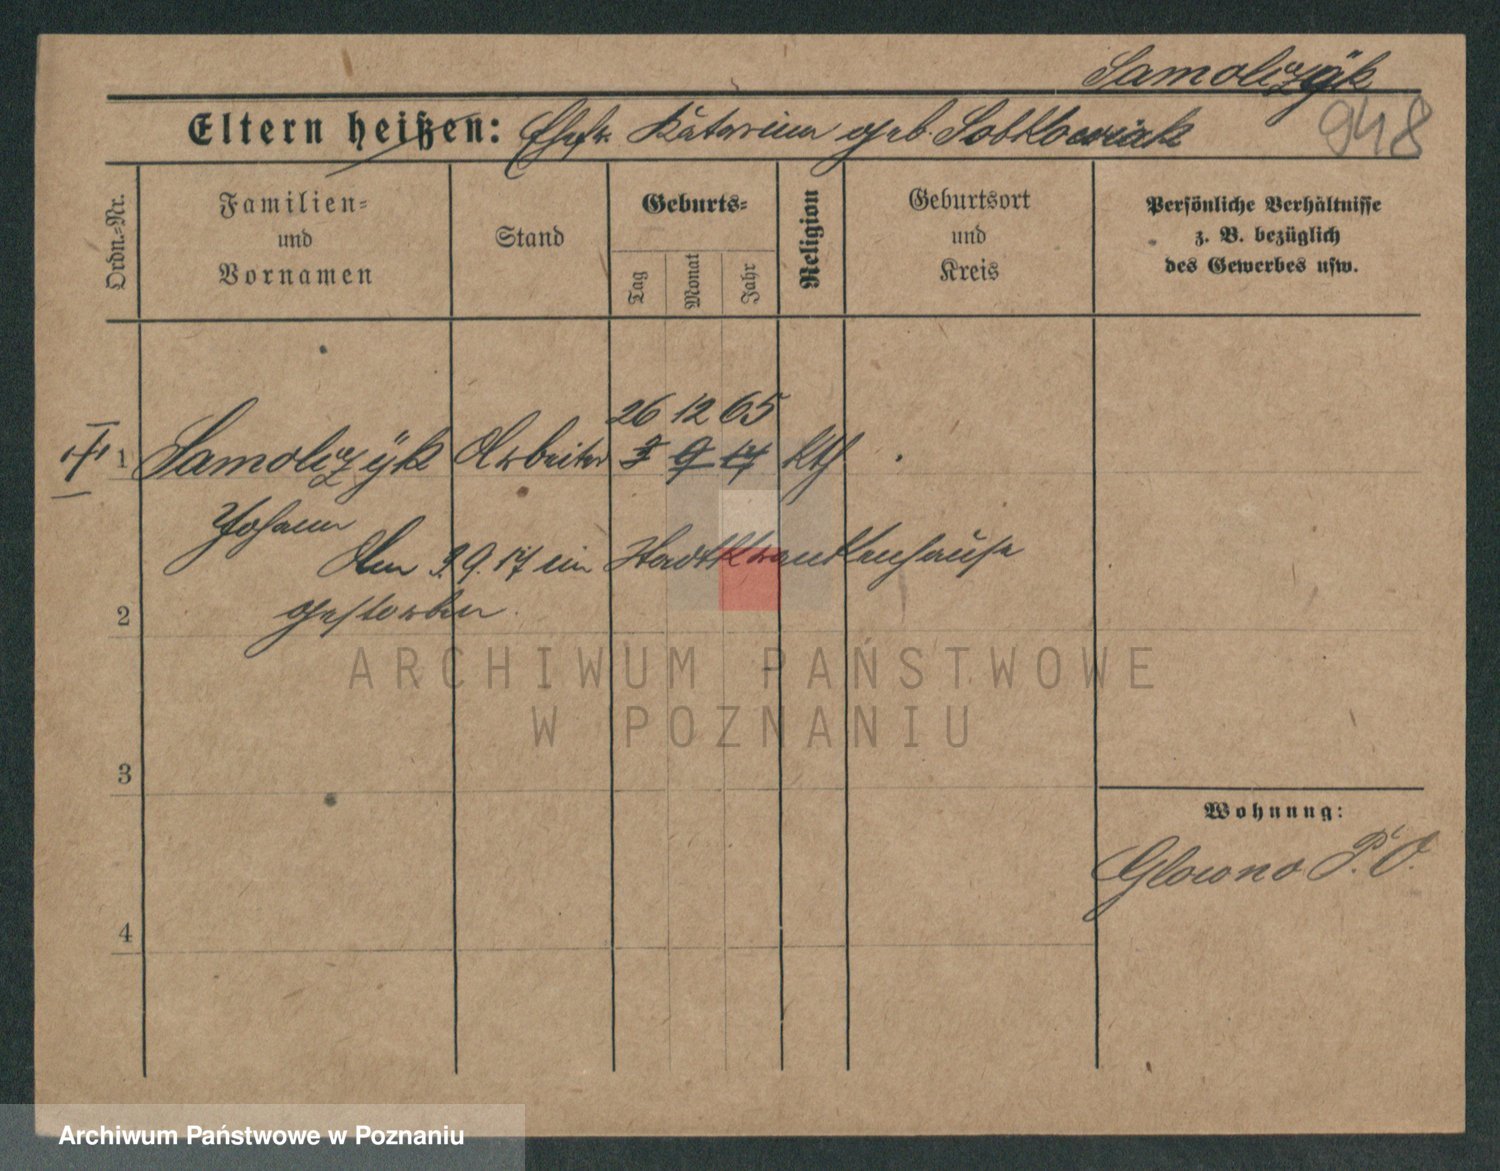 Samolczÿk
948
Eltern heißen: Ehefr. Katarina geb. Sobkowiak
Ordn.-Nr.
Familien-
und
Vornamen
Stand
Geburts-
Tag
Monat
Jahr
Religion
Geburtsort
und
Kreis
Persönliche Verhältnisse
z. B. bezüglich
des Gewerbes usw.
26 12 65
1 Samolczÿk Arbeiter 3 9 17 Kth
Johann
Am 3.9.17 im Stadtkrankenhause
2 gestorben.
ARCHIWUM PAŃSTWOWE
W POZNANIU
3
Wohnung:
Glowno P. O.
4
Archiwum Państwowe w Poznaniu